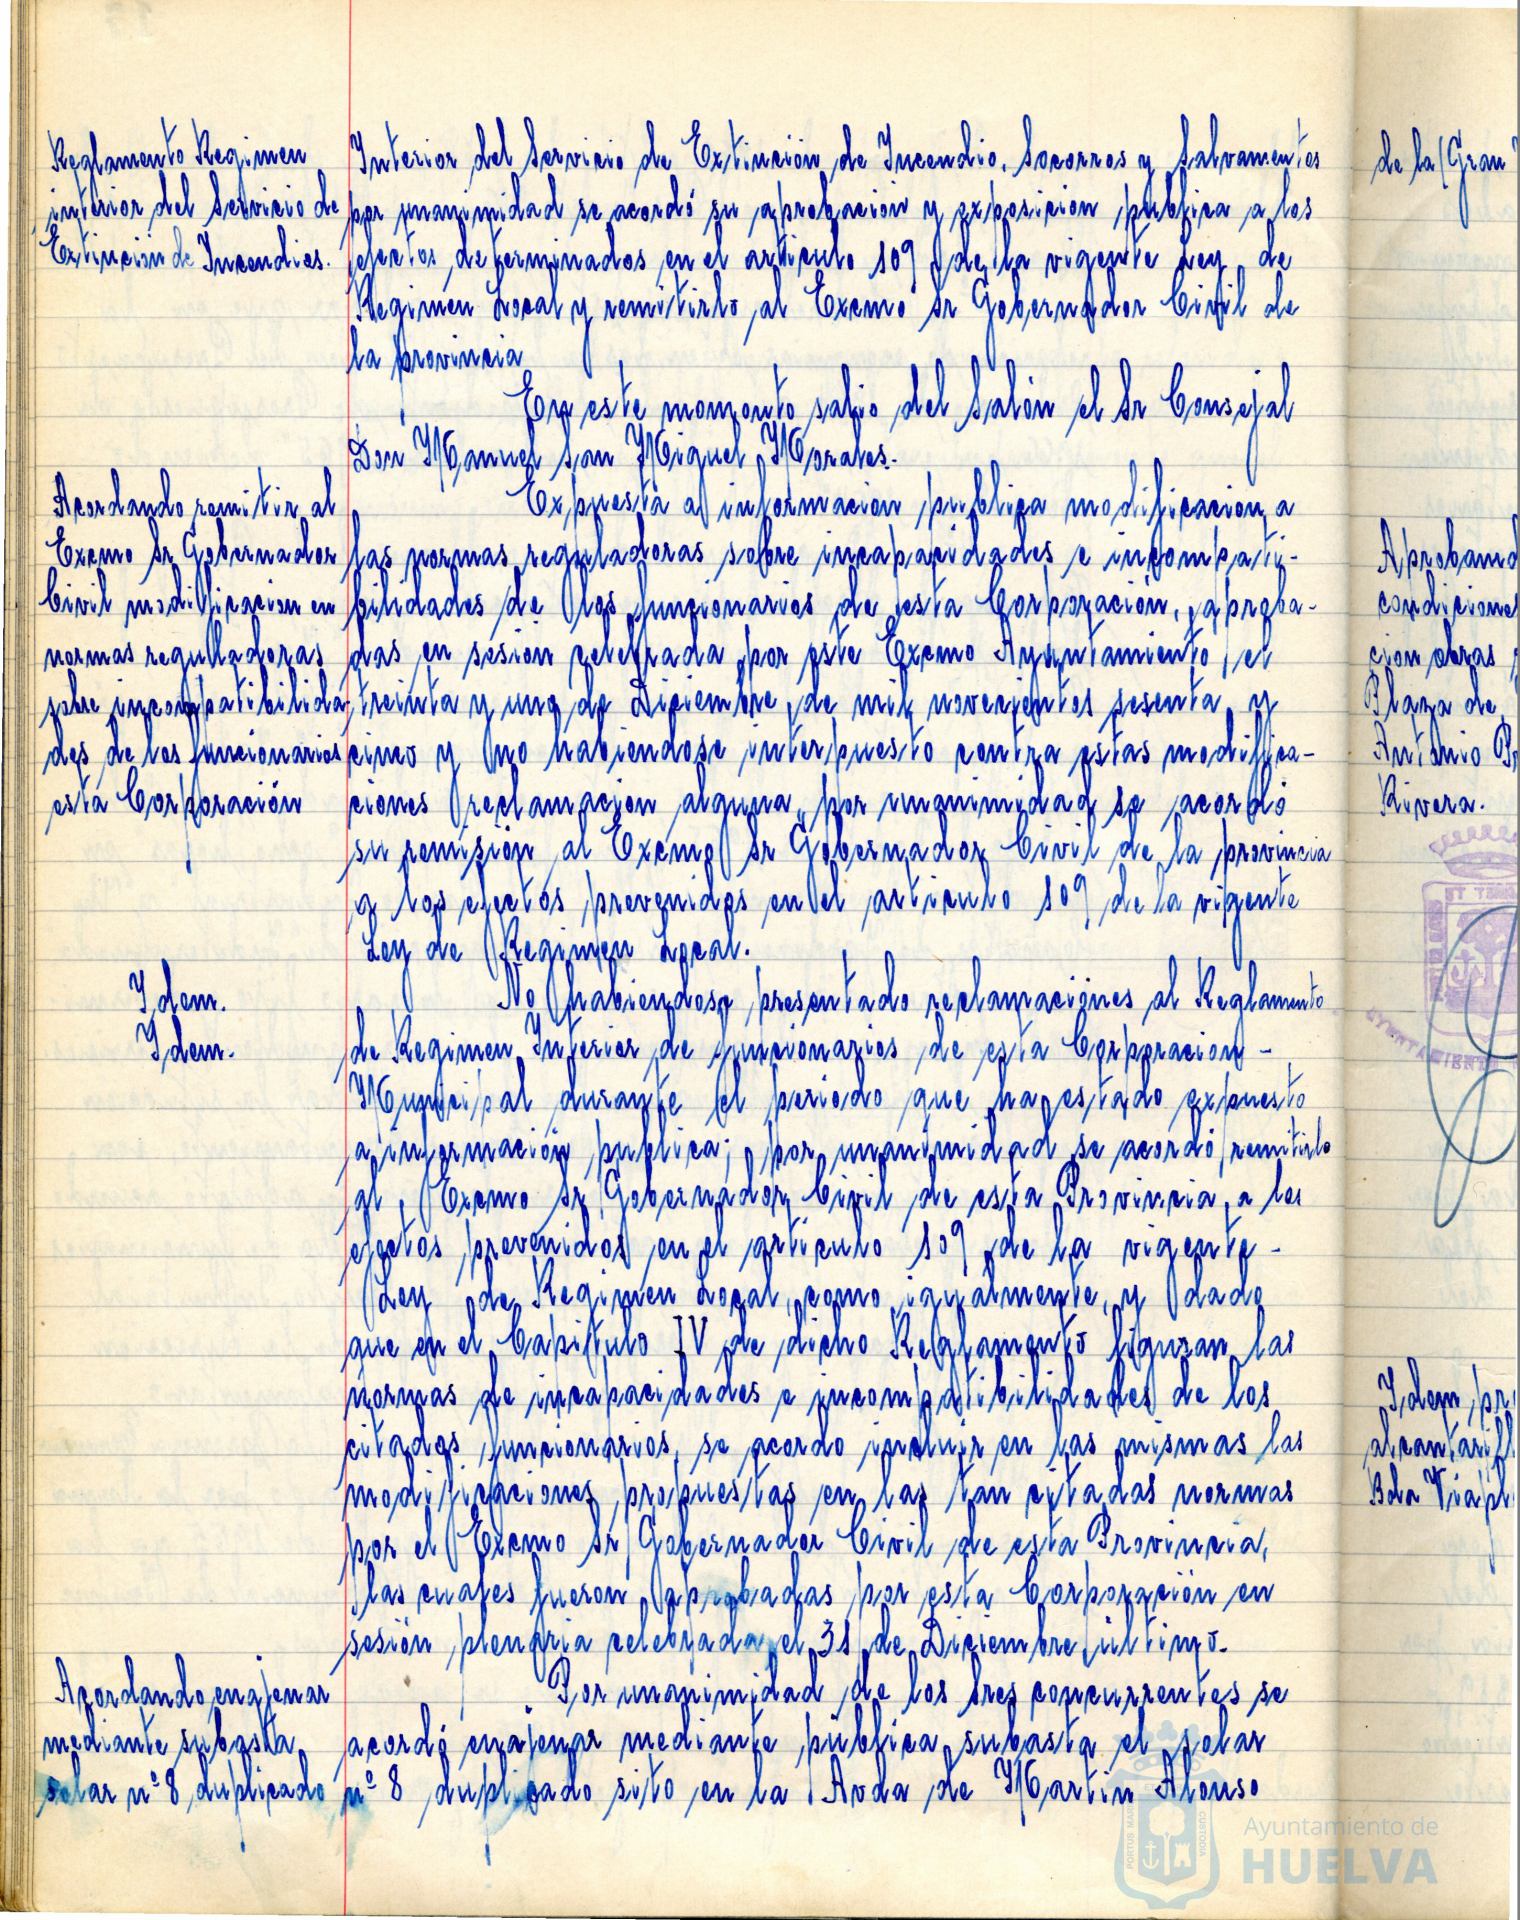 Reglamento Regimen
interior del Servicio de
Extinción de Incendios.
Interior del Servicio de Extinción de Incendio, Socorros y Salvamentos
por unanimidad se acordó su aprobación y exposición publica a los
efectos determinados en el articulo 109 de la vigente Ley de
Regimen Local y remitirlo al Excmo Sr Gobernador Civil de
la provincia
En este momento salio del Salón el Sr Consejal
Don Manuel San Miguel Morales.
Acordando remitir al
Excmo Sr Gobernador
Civil modificacion en
normas reguladoras
sobre incompatibilida
des de los funcionarios
esta Corporación
Expuesta a información publica modificacion a
las normas reguladoras sobre incapacidades e incompati-
bilidades de los funcionarios de esta Corporación, aproba-
das en sesion celebrada por este Excmo Ayuntamiento, el
treinta y uno de Diciembre de mil novecientos sesenta y
cinco y no habiendose interpuesto contra estas modifica-
ciones reclamacion alguna, por unanimidad se acordó
su remisión al Excmo Sr Gobernador Civil de la provincia
a los efectos prevenidos en el articulo 109 de la vigente
Ley de Regimen Local.
Idem.
Idem.
No habiendose presentado reclamaciones al Reglamento
de Regimen Interior de funcionarios de esta Corporacion -
Municipal durante el periodo que ha estado expuesto
a información publica; por unanimidad se acordó remitirlo
al Excmo Sr Gobernador Civil de esta Provincia, a los
efectos prevenidos en el articulo 109 de la vigente -
Ley de Regimen Local, como igualmente, y dado
que en el Capitulo IV de dicho Reglamento figuran las
normas de incapacidades e incompatibilidades de los
citados funcionarios, se acordo incluir en las mismas las
modificaciones propuestas en las tan citadas normas
por el Excmo Sr Gobernador Civil de esta Provincia,
las cuales fueron aprobadas por esta Corporación en
sesión plenaria celebrada el 31 de Diciembre último.
Acordando enajenar
mediante subasta
solar nº 8 duplicado
Por unanimidad de los Sres concurrentes se
acordó enajenar mediante pública subasta el solar
nº 8 duplicado sito en la Avda de Martin Alonso
de la (Gran
Aproband
condiciones
cion obras
Plaza de
Antonio
Rivera.
Idem
alcantarill
Bda
Ayuntamiento de
HUELVA
PORTUS MARIS
CUSTODIA